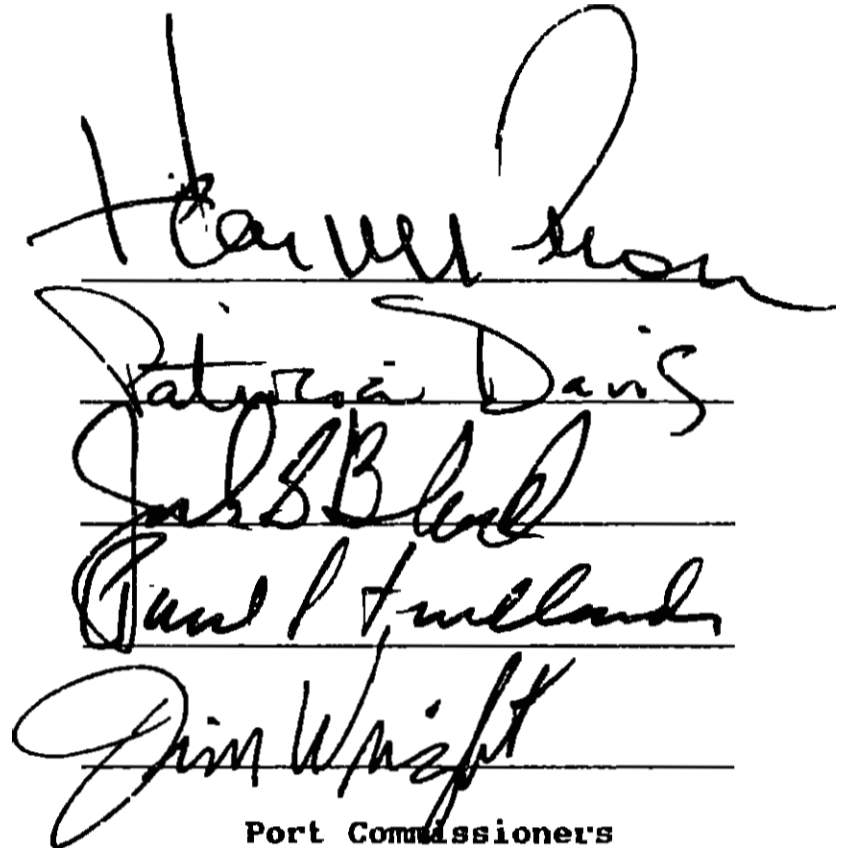 Patricia Davis
Jack Block
Paul Friedlander
Jim Wright
Port Commissioners